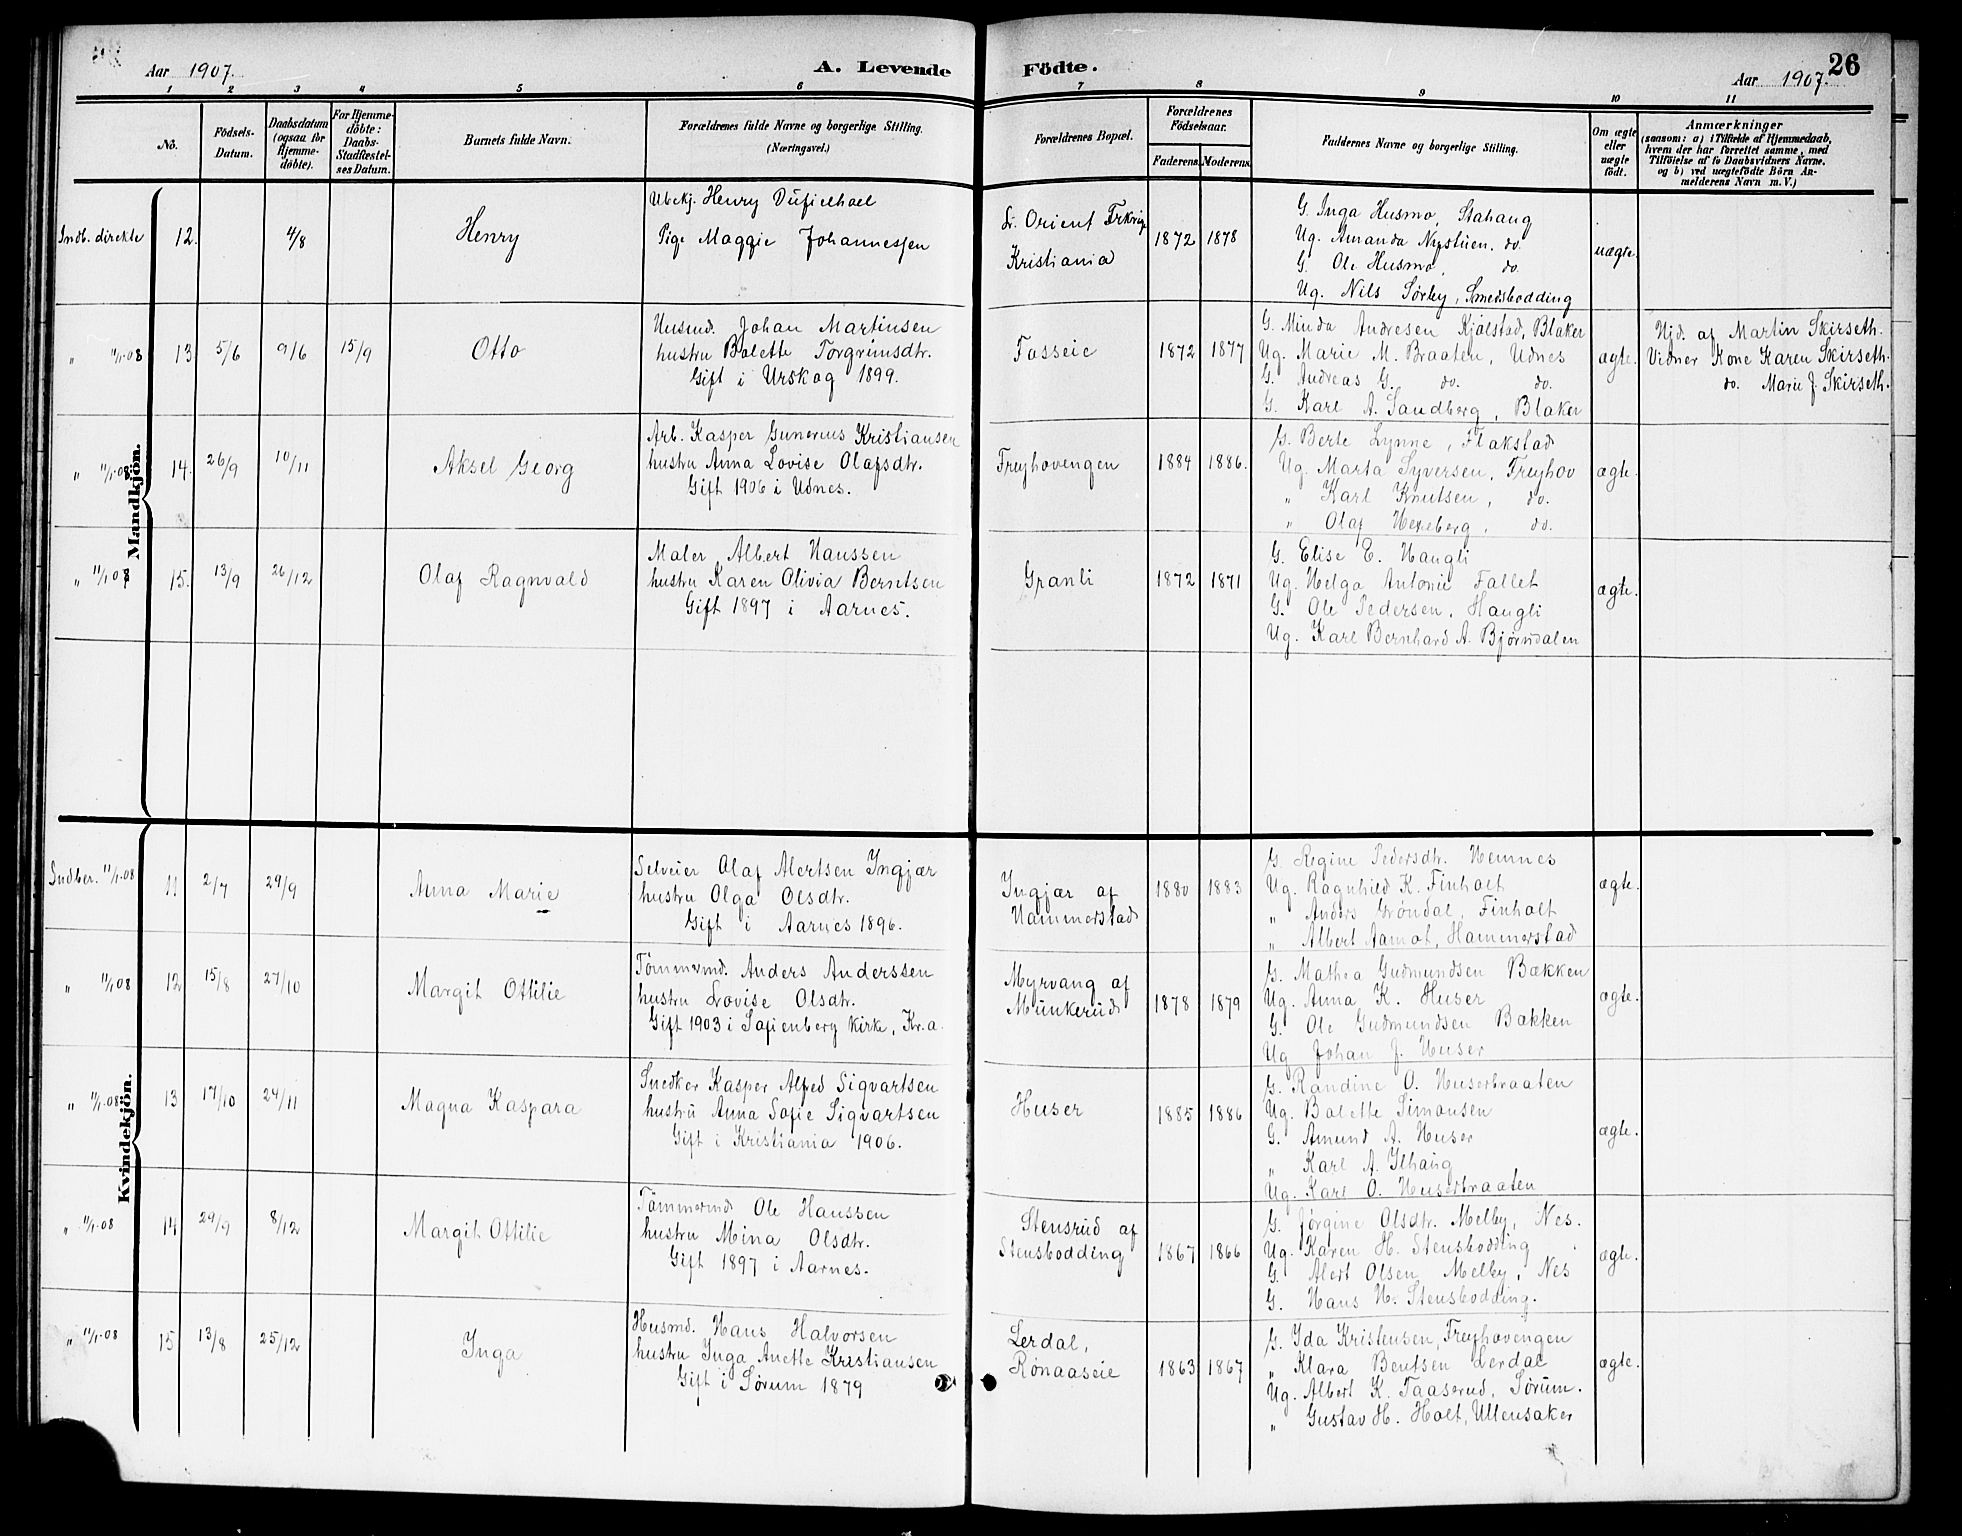 Aar 1907.
A. Levende Födte.
Aar 1907.
26
1 2 3 4 5 6 7 8 9 10 11
No.
Födsels-Datum.
Daabsdatum (ogsaa for Hjemme-döbte).
For Hjemme-döbte: Daabs-Stadfæstel-ses Datum.
Barnets fulde Navn.
Forældrenes fulde Navne og borgerlige Stilling.
(Næringsvei.)
Forældrenes Bopæl.
Forældrenes Födselsaar.
Faderens. Moderens.
Faddernes Navne og borgerlige Stilling.
Om ægte eller uægte födt.
Anmærkninger
(saasom: a) i Tilfælde af Hjemmedaab,
hvem der har forrettet samme, med
Tilföielse af to Daabsvidners Navne.
og b) ved uægtefödte Börn An-
melderens Navn m. V.)
Mandkjön.
Indb. direkte 12. 4/8 Henry
Ubekj. Henry
Pige Maggie Johannessen
Orient
Kristiania
1872 1878
G. Inga Husmo, Stahaug
Ug. Amanda Nystuen. do.
G. Ole Husmo, do.
Ug. Nils Sørby, Smedsbødding
uægte.
" 11/1-08 13 5/6 9/6 15/9 Otto
Husmd. Johan Martinsen
hustru Bolette Torgrimsdtr.
Gift i Urskog 1899.
Fosseie
1872 1877
G. Minda Andresen Kjølstad, Blaker
Ug. Marie M. Braaten, Udnes
G. Andreas G. do. do.
G. Karl A. Sandberg, Blaker
ægte.
Hjd. af Martin Skirseth.
Vidner Kone Karen Skirseth.
do. Marie J. Skirseth.
" 11/1-08 14. 26/9 10/11 Aksel Georg
Arb. Kasper Gunerius Kristiansen
hustru Anna Lovise Olafsdtr.
Gift 1906 i Udnes.
Freyhovengen
1884 1886.
G. Berte Lynne, Flakstad
Ug. Marta Syversen, Freyhov
" Karl Knutsen, do.
" Olaf Hexeberg, do.
ægte.
" 11/1-08 15. 13/9 26/12 Olaf Ragnvald
Maler, Albert Hanssen
hustru Karen Olivia Berntsen
Gift 1897 i Aarnes.
Granli
1872 1871
G. Elise E. Haugli
Ug. Helga Antonie Fallet
G. Ole Pedersen, Haugli
Ug. Karl Bernhard A. Bjørndalen
ægte.
Kvindekjön.
Indber. 11/1-08 11 2/7 29/9 Anna Marie
Selveier Olaf Alertsen Ingjær
hustru Olga Olsdtr.
Gift i Aarnes 1896.
Ingjær af
Hammerstad
1880 1883
G. Regine Pedersdtr. Hemnes
Ug. Ragnhild K. Finholt
" Anders Grøndal, Finholt
" Albert Aamot, Hammerstad
ægte.
" 11/1 08 12 15/8 27/10 Margit Ottilie
Tömmermd. Anders Anderssen
hustru Lovise Olsdtr.
Gift 1903 i Sofienberg kirke, Kr.a.
Myrvang af
Munkerud
1878 1879
G. Mathea Gudmundsen Bækken
Ug. Anna K. Huser
G. Ole Gudmundsen Bækken
Ug Johan J. Huser
ægte.
" 11/1-08 13 17/10 24/11 Magna Kaspara
Snedker Kasper Alfred Sigvartsen
hustru Anna Sofie Sigvartsen
Gift i Kristiania 1906.
Huser
1885 1886
G. Randine O. Huserbraaten
Ug. Bolette Simonsen
G. Amund A. Huser
" Karl A. Ilhaug
Ug. Karl O. Huserbraaten
ægte.
" 11/1-08 14 29/9 8/12 Margit Ottilie
Tömmermd Ole Hanssen
hustru Mina Olsdtr.
Gift 1897 i Aarnes.
Stensrud af
Stensbødding
1867 1866
G. Jørgine Olsdtr. Melby, Nes.
Ug. Karen H. Stensbødding
G. Alert Olsen, Melby, Nes
G. Hans H. Stensbødding.
ægte.
" 11/1-08 15 13/8 25/12 Inga
Husmd. Hans Halvorsen
hustru Inga Anette Kristiansen
Gift i Sørum 1879
Lerdal,
Rönaaseie
1863 1867
G. Ida Kristensen, Freyhovengen
" Klara Bentsen Lerdal
Ug. Albert K. Taaserud, Sørum.
" Gustav H. Holt, Ullensaker
ægte.